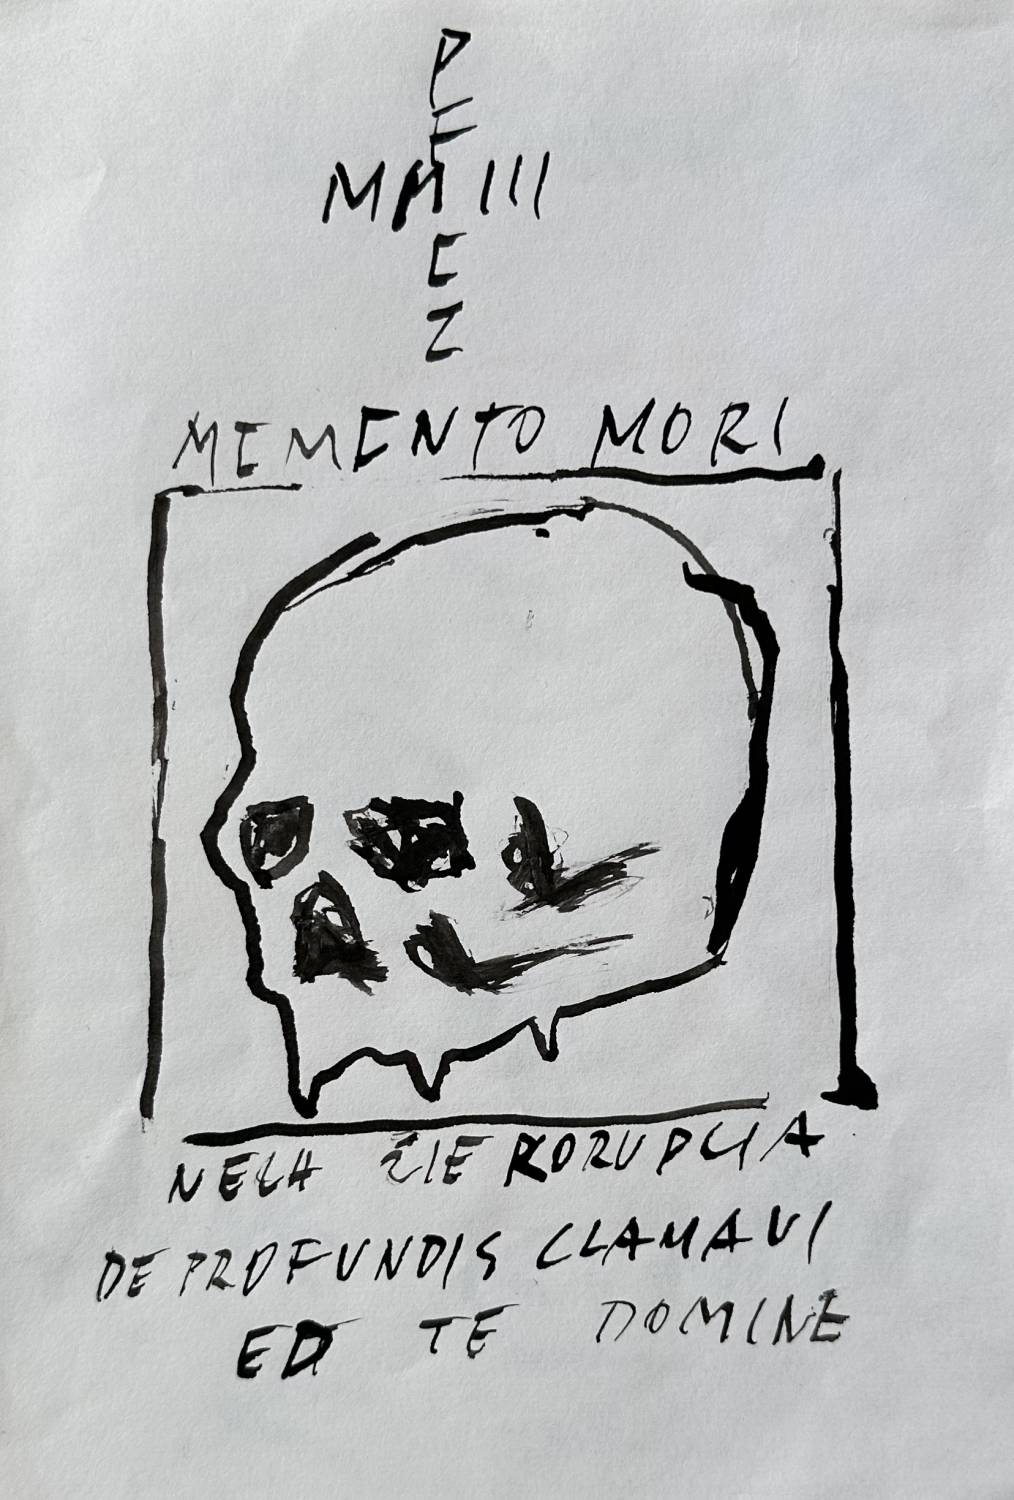 P
E
E
Z
MEMENTO MORI
NECH ŽIE KORUPCIA
DE PROFUNDIS CLAMAVI
ED TE DOMINE